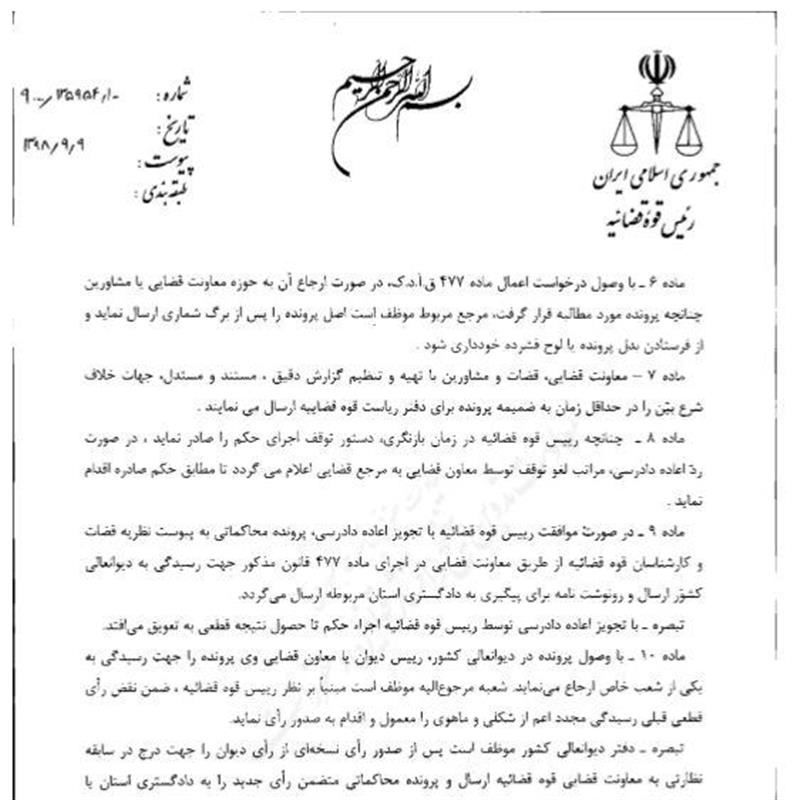 بسم الله الرحمن الرحیم
جمهوری اسلامی ایران
رئیس قوهٔ قضائیه
شماره: ۹۰۰۰/۱۳۵۹۵۴/۱۰
تاریخ: ۱۳۹۸/۹/۹
پیوست:
طبقه‌بندی:
ماده ۶ ـ با وصول درخواست اعمال ماده ۴۷۷ ق.آ.د.ک، در صورت ارجاع آن به حوزه معاونت قضایی یا مشاورین
چنانچه پرونده مورد مطالبه قرار گرفت، مرجع مربوط موظف است اصل پرونده را پس از برگ شماری ارسال نماید و
از فرستادن بدل پرونده یا لوح فشرده خودداری شود .
ماده ۷ – معاونت قضایی، قضات و مشاورین با تهیه و تنظیم گزارش دقیق ، مستند و مستدل، جهات خلاف
شرع بیّن را در حداقل زمان به ضمیمه پرونده برای دفتر ریاست قوه قضاییه ارسال می نمایند .
ماده ۸ ـ چنانچه رییس قوه قضائیه در زمان بازنگری، دستور توقف اجرای حکم را صادر نماید ، در صورت
ردّ اعاده دادرسی، مراتب لغو توقف توسط معاون قضایی به مرجع قضایی اعلام می گردد تا مطابق حکم صادره اقدام
نماید .
ماده ۹ ـ در صورت موافقت رییس قوه قضائیه با تجویز اعاده دادرسی، پرونده محاکماتی به پیوست نظریه قضات
و کارشناسان قوه قضائیه از طریق معاونت قضایی در اجرای ماده ۴۷۷ قانون مذکور جهت رسیدگی به دیوانعالی
کشور ارسال و رونوشت نامه برای پیگیری به دادگستری استان مربوطه ارسال می‌گردد.
تبصره ـ با تجویز اعاده دادرسی توسط رییس قوه قضائیه اجراء حکم تا حصول نتیجه قطعی به تعویق می‌افتد.
ماده ۱۰ ـ با وصول پرونده در دیوانعالی کشور، رییس دیوان یا معاون قضایی وی پرونده را جهت رسیدگی به
یکی از شعب خاص ارجاع می‌نماید. شعبه مرجوع‌الیه موظف است مبنیاً بر نظر رییس قوه قضائیه ، ضمن نقض رأی
قطعی قبلی رسیدگی مجدد اعم از شکلی و ماهوی را معمول و اقدام به صدور رأی نماید.
تبصره ـ دفتر دیوانعالی کشور موظف است پس از صدور رأی نسخه‌ای از رأی دیوان را جهت درج در سابقه
نظارتی به معاونت قضایی قوه قضائیه ارسال و پرونده محاکماتی متضمن رأی جدید را به دادگستری استان یا